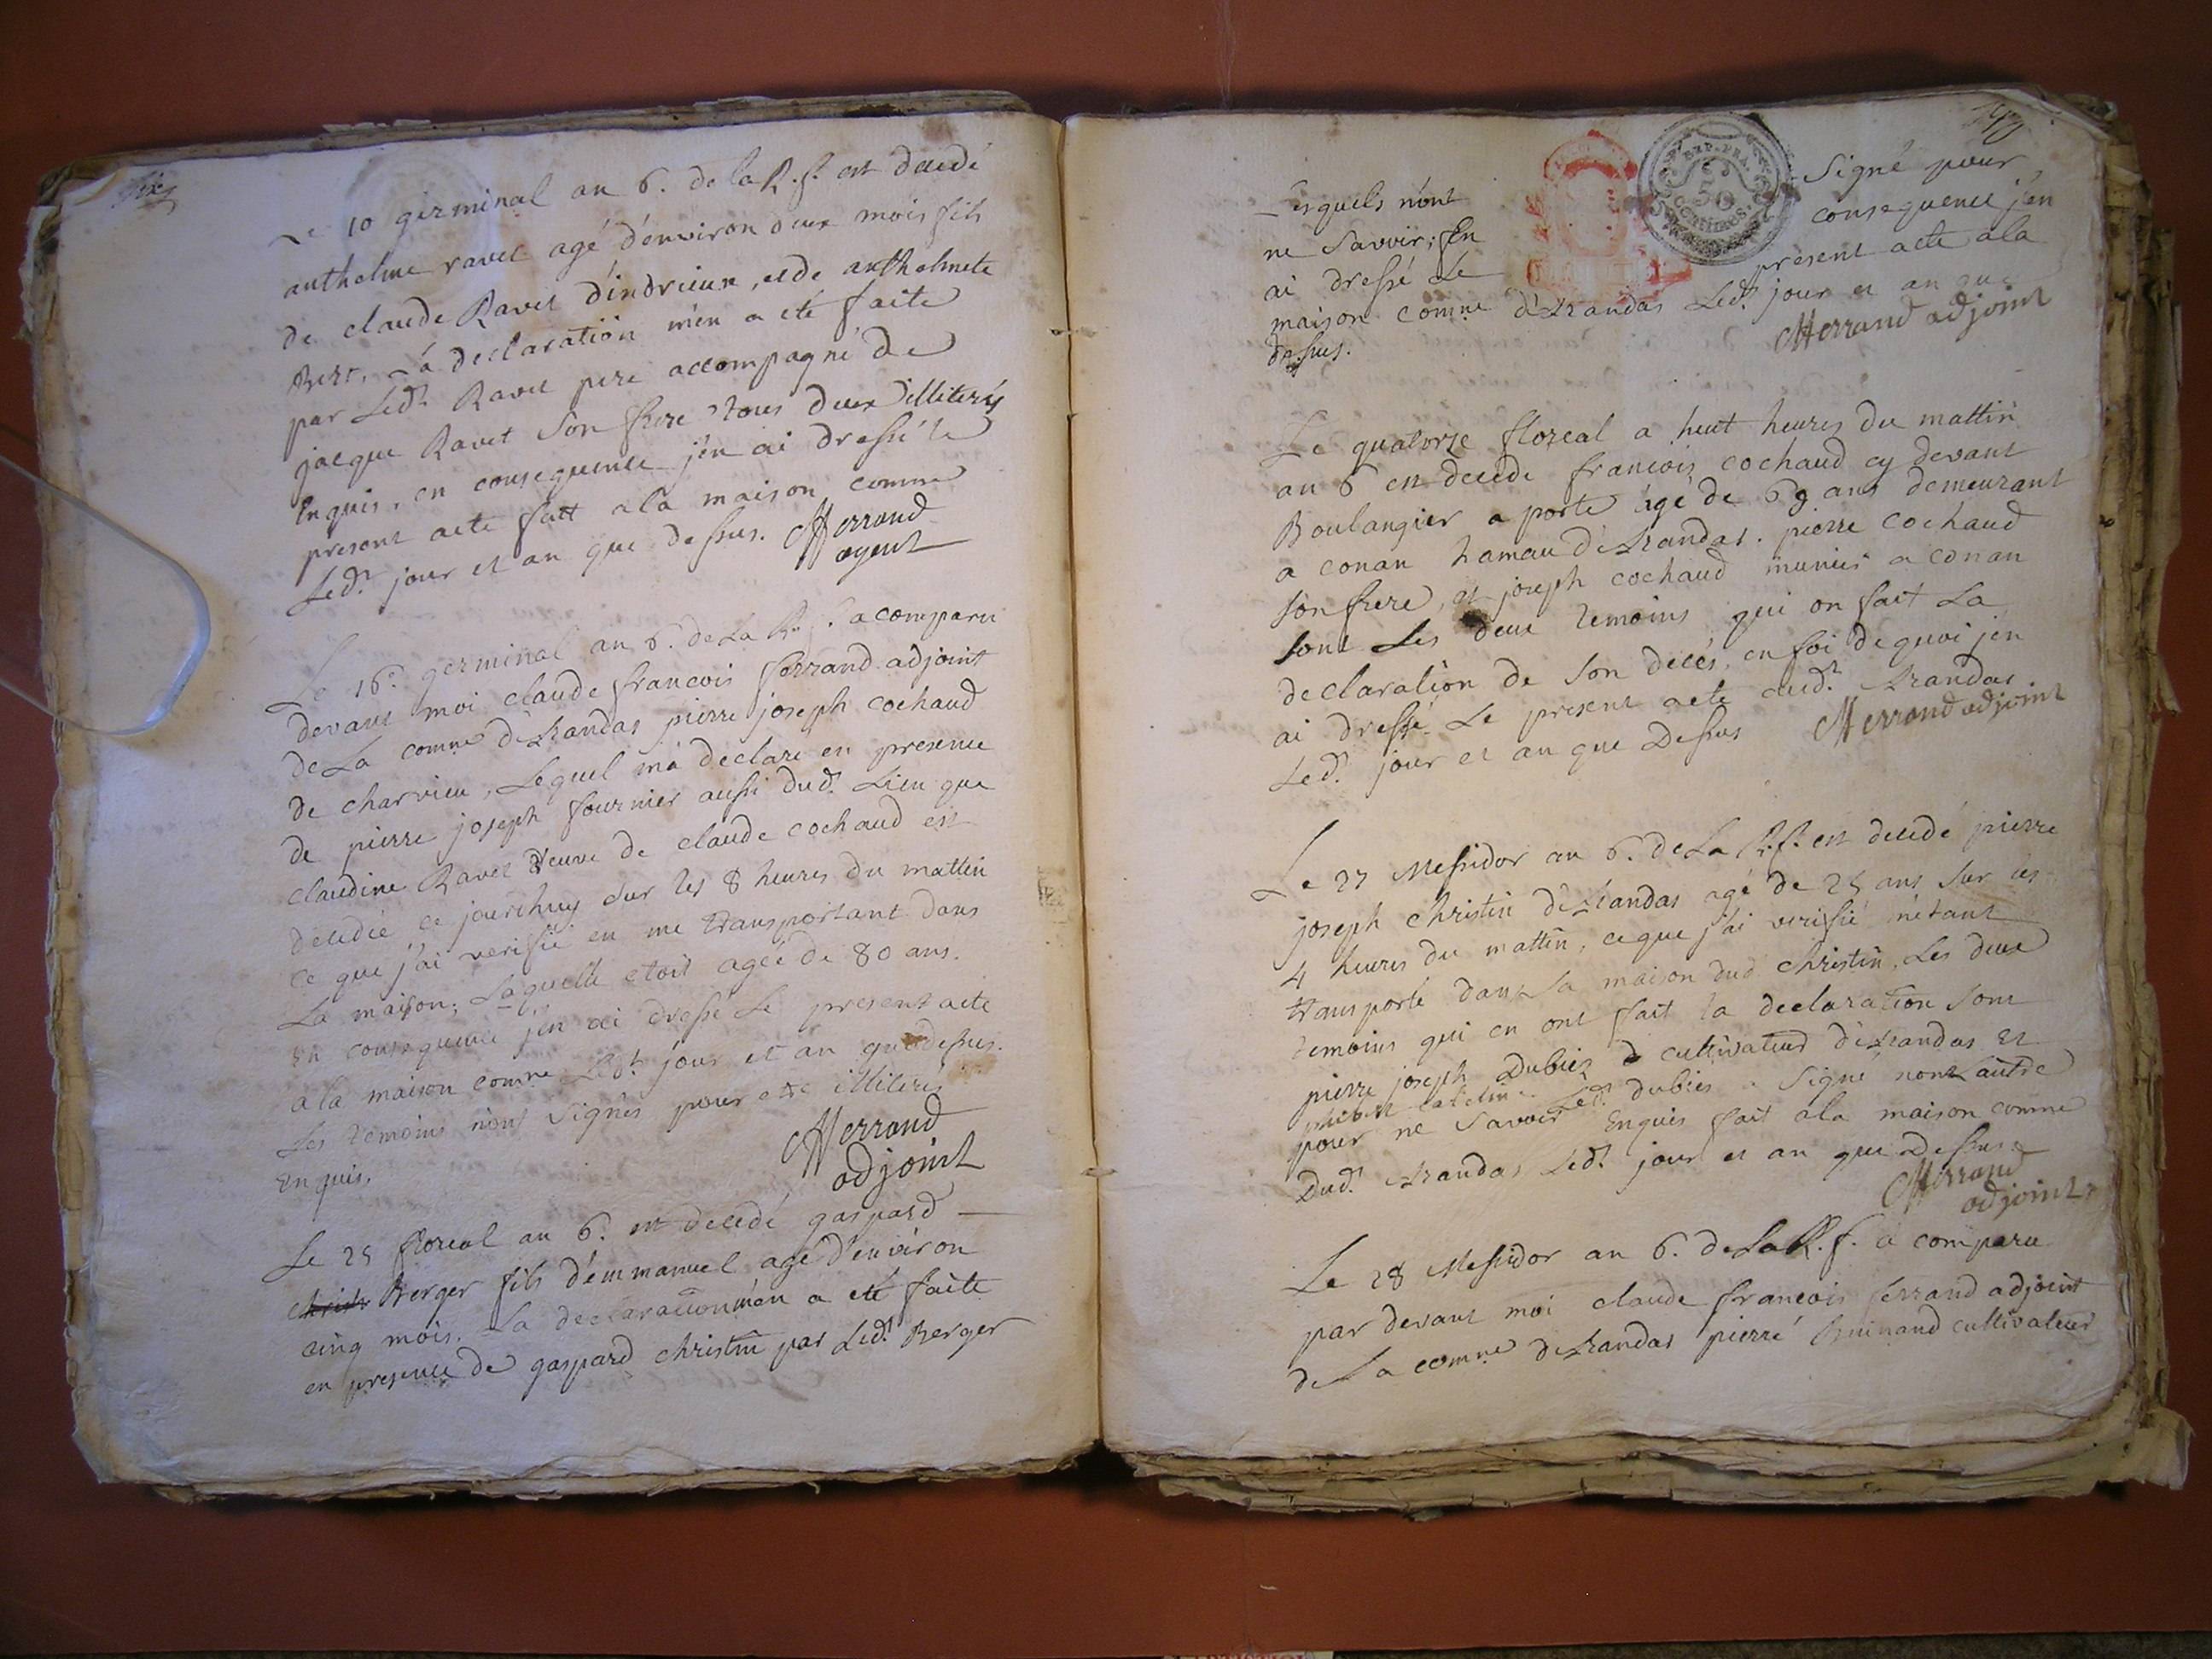 Le 10 germinal an 6. de la R. f. est decedé
anthelme ravet agé d'environ deux mois fils
de claude Ravet d'indrieux, et de anthelmete
Bert, La declaration m'en a eté faite
par Led.t Ravet pere accompagné de
jacque Ravet son frere tous deux illiterés
Enquis, en consequence j'en ai dressé le
present acte fait a la maison comme
Led.t jour et an que dessus. CfFerrand
agent
Le 16e germinal an 6. de La R. f. a comparu
devant moi claude francois ferrand adjoint
de La comne d'Arandas pierre joseph cochaud
de charvieu, Lequel m'a declare en presence
de pierre joseph fournier aussi dud.t Lieu que
claudine Ravet veuve de claude cochaud est
decedée ce jourdhuy sur les 8 heures du mattin
ce que j'ai verifié en me transportant dans
La maison; Laquelle etoit agée de 80 ans.
En consequence j'en ai dressé Le present acte
a la maison comne Led.t jour et an que dessus.
Les temoins n'ont signés pour etre illiterés
Enquis.
CfFerrand
adjoint
Le 25 floreal an 6. est decedé gaspard
Berger fils d'emmanuel agé d'environ
cinq mois. La declaration m'en a eté faite
en presence de gaspard christin par Led.t Berger
EXP. FRA.
50
CENTIMES.
Lesquels n'ont Signé pour
ne Savoir; En consequence j'en
ai dressé Le present acte a la
maison comne d'Arandas Led.t jour et an que
dessus. CfFerrand adjoint
Le quatorze floreal a huit heures du mattin
an 6 est decedé francois cochaud cy devant
Boulangier a porte agé de 69 ans demeurant
a conan hamau d'Arandas. pierre cochaud
son frere, et joseph cochaud munier a conan
sont Les deux temoins qui on fait La
declaration de Son decés, en foi de quoi j'en
ai dressé Le present acte aud.t Arandas
Led.t jour et an que Dessus CfFerrand adjoint
Le 27 Messidor an 6. de La R. f. est decedé pierre
joseph christin d'Arandas agé de 25 ans Sur les
4 heures du mattin, ce que j'ai verifié m'etant
transporté dans La maison dud. christin, Les deux
temoins qui en ont fait la declaration sont
pierre joseph Dubiez cultivateur d'Arandas Et
Led.t dubiez a Signé non L'autre
pour ne Savoir Enquis fait a la maison comne
Dud.t Arandas Led.t jour et an que Dessus
CfFerrand
adjoint
Le 28 Messidor an 6. de La R. f. a comparu
par devant moi claude francois ferrand adjoint
de La comne d'Arandas pierre cultivateur